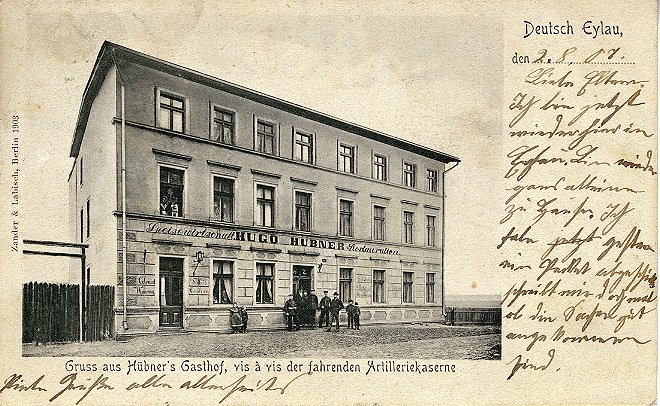 Deutsch Eylau,
den 2. 8. 07.
Liebe Eltern.
Ich bin jetzt
wieder hier in
Eylau. Bin wieder
ganz alleine
zu Hause. Ich
habe jetzt gestern
ein Packet abgeschickt
schreibt mir doch mal
ob die Sachen gut
angekommen
sind.
Viele Grüße alle allerseits
Speisewirtschaft HUGO HÜBNER Restauration.
Gruss aus Hübner's Gasthof, vis à vis der fahrenden Artilleriekaserne
Zander & Labisch, Berlin 1903